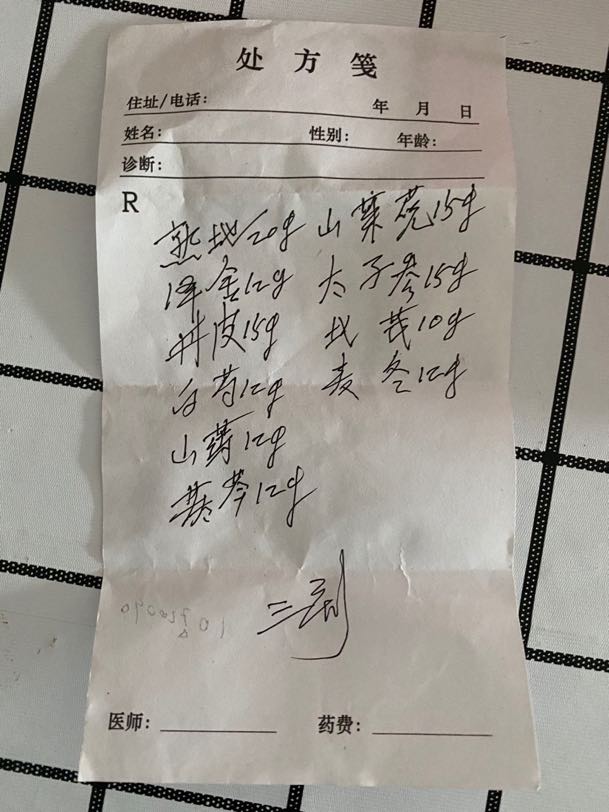 处方笺
住址/电话： 年 月 日
姓名： 性别： 年龄：
诊断：
R
熟地20g 山茱萸15g
泽舍12g 太子参15g
丹皮15g 北芪10g
白芍12g 麦冬12g
山药12g
黄芩12g
三剂
医师： 药费：